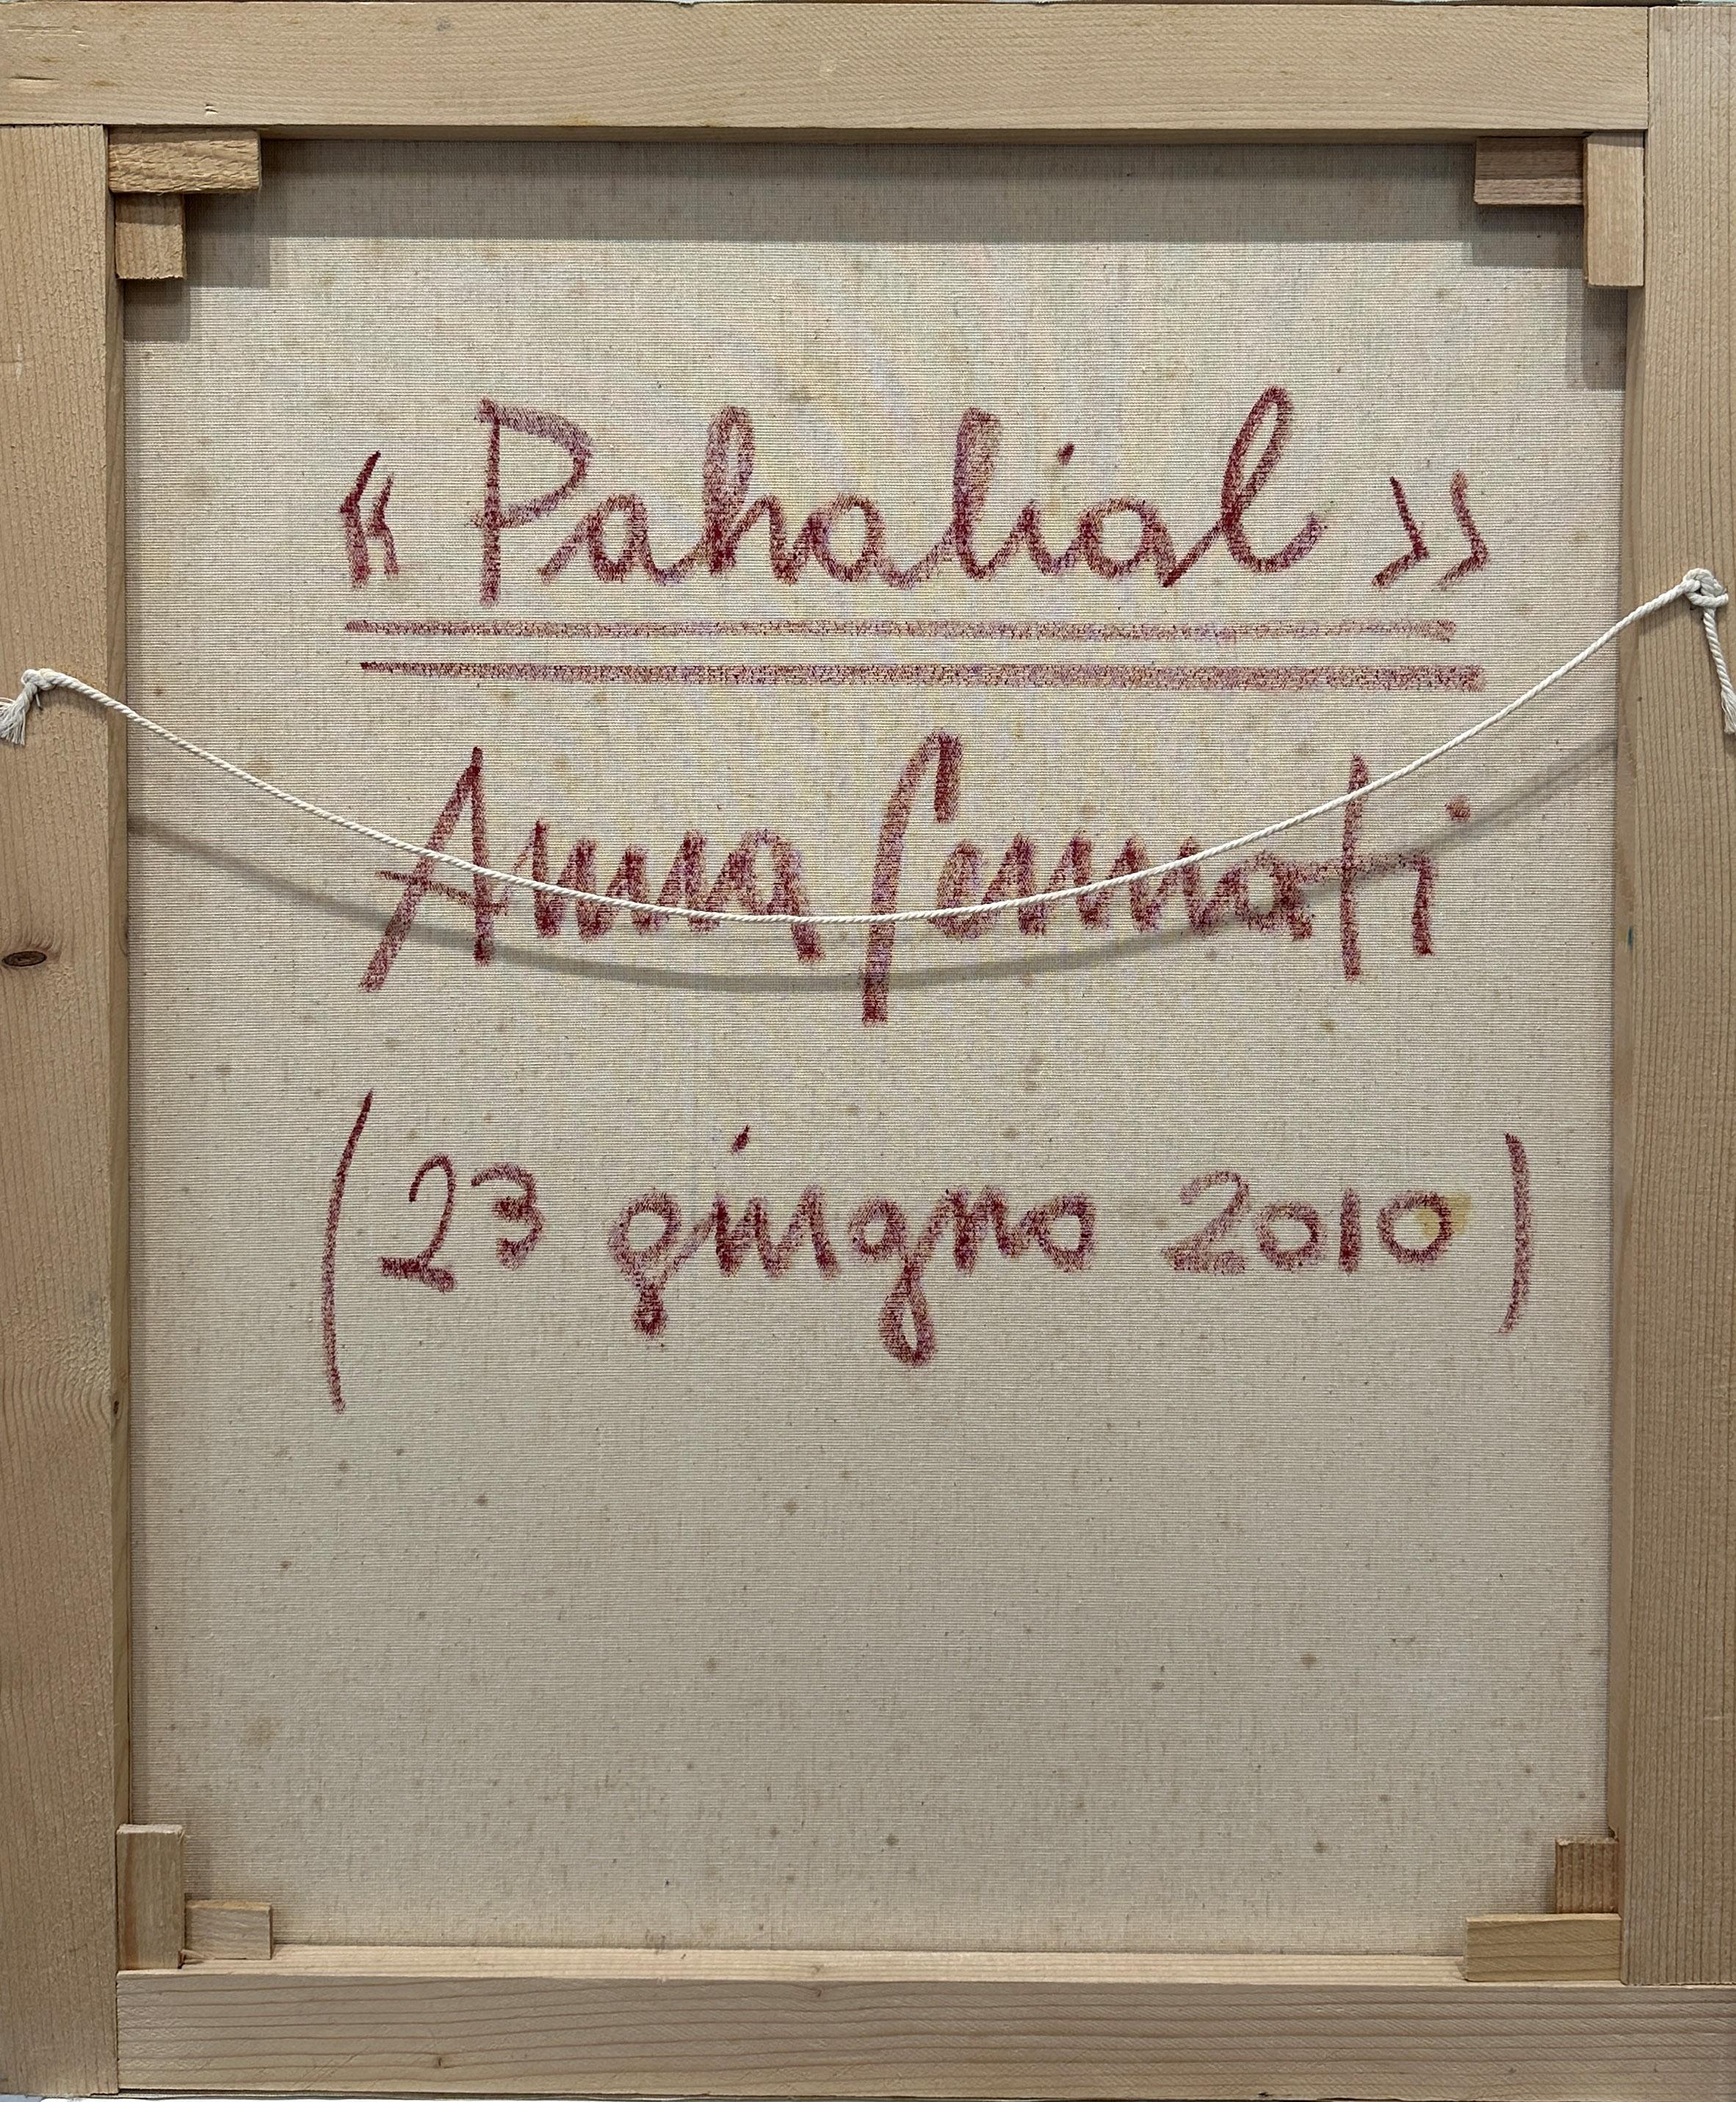 « Pahalial »
Anna Pennati
(23 giugno 2010)